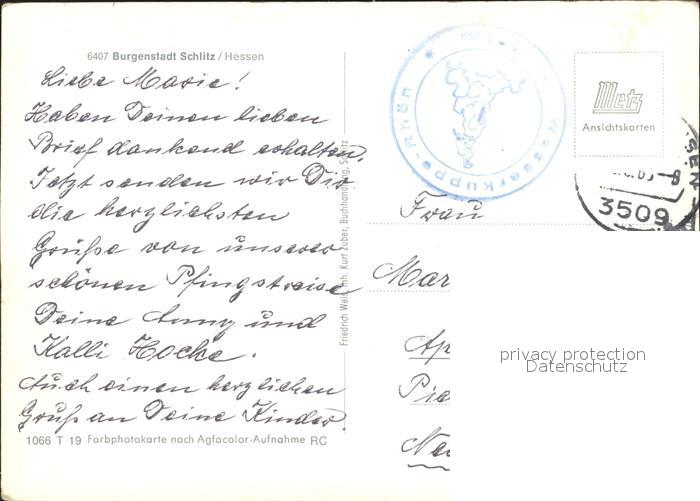 6407 Burgenstadt Schlitz / Hessen
Liebe Marie!
Haben Deinen lieben
Brief dankend erhalten.
Jetzt senden wir Dir
die herzlichsten
Grüße von unserer
schönen Pfingstreise
Deine Anny und
Kalli Hocke.
Auch einen herzlichen
Gruß an Deine Kinder.
1066 T 19 Farbphotokarte nach Agfacolor-Aufnahme RC
Friedrich Weis, Inh. Kurt Zuber, Buchhandlung, Schlitz
Wasserkuppe-Rhön
Metz
Ansichtskarten
3509
Frau
Mar
Ap
privacy protection
Datenschutz